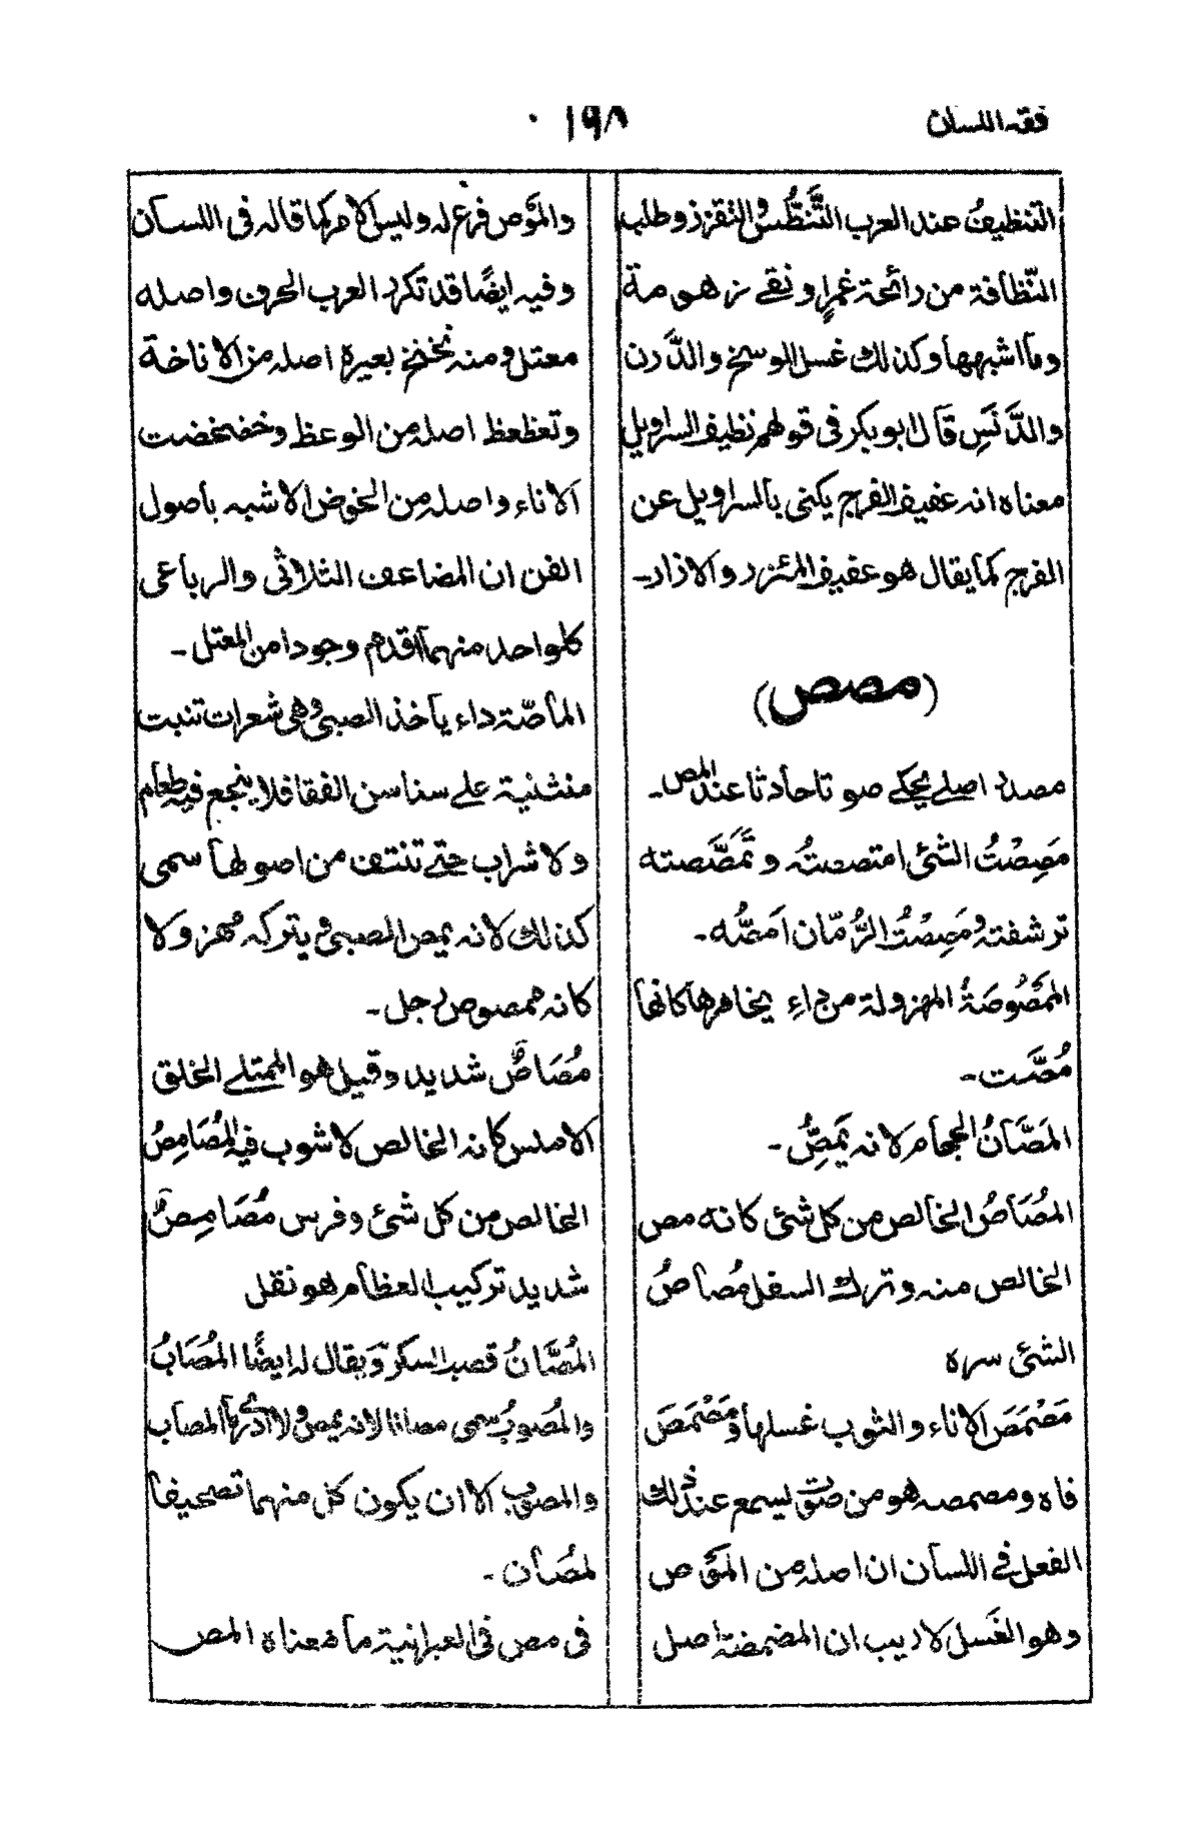 فقه اللسان
١٩٨
التنظيف عند العرب التَّنَطُّس والتقزز وطلب
النّظافة من رائحة غمرٍ او نقے زهومة
وما اشبهها وكذلك غسل الوسخ والدَّرن
والدَّنَسِ قال ابوبكر فى قولهم نظيف السراويل
معناه انه عفيف الفرج يكنى بالسراويل عن
الفرج كما يقال هو عفيف المئزر والازار-
(مصص)
مصدر اصلے يحكے صوتا حادثا عند المص-
مَصِصْتُ الشئ امتصصتُه وتَمَصَّصته
ترشفته ومَصِصْتُ الرُّمّان اَمَصُّه-
المَمْصُوصَةُ المهزولة من داءٍ يخامرها كانها
مُصَّت-
المَصَّانُ الحجام لانه يَمَصُّ-
المُصَاصُ الخالص من كل شئ كانه مص
الخالص منه وترك السفل مُصاصُ
الشئ سره
مَصْمَصَ الاناء والثوب غسلها ومَصْمَصَ
فاه ومصمصه هو من صوت يسمع عند ذلك
الفعل فے اللسان ان اصله من المَوْص
وهو الغَسل لاريب ان المضمضة اصل
والمَوْص فرع له وليس الامر كما قاله فى اللسان
وفيه ايضًا قد تكرر العرب الحرف واصله
معتل ومنه نخنخ بعيره اصله من الاناخة
وتعظعظ اصله من الوعظ وخضخضت
الاناء واصله من الخوض الاشبه باصول
الفن ان المضاعف الثلاثى والرباعى
كلواحد منهما اقدم وجودا من المعتل-
الماصّة داء ياخذ الصبى وهى شعرات تنبت
منثنية علے سناسن الفقا فلا ينجع فيه طعام
ولا شراب حتے تنتف من اصولها سمى
كذلك لانه يمص الصبى ويتركه مُهزولا
كانه ممصوص رجل-
مُصَاصٌ شديد وقيل هو الممتلے الخلق
الاملس كانه الخالص لاشوب فيه المُصَامِصُ
الخالص من كل شئ وفرس مُصَامِصٌ
شديد تركيب العظام هو نقل
المُصَّانُ قصب السكر ويقال له ايضًا المُصَابُ
والمُصُوبُ سمى مصانا لانه يمص ولا ادرى ما المصاب
والمصوب الا ان يكون كل منهما تصحيفا
لمُصّان-
فى مص فى العبرانية ما معناه المص